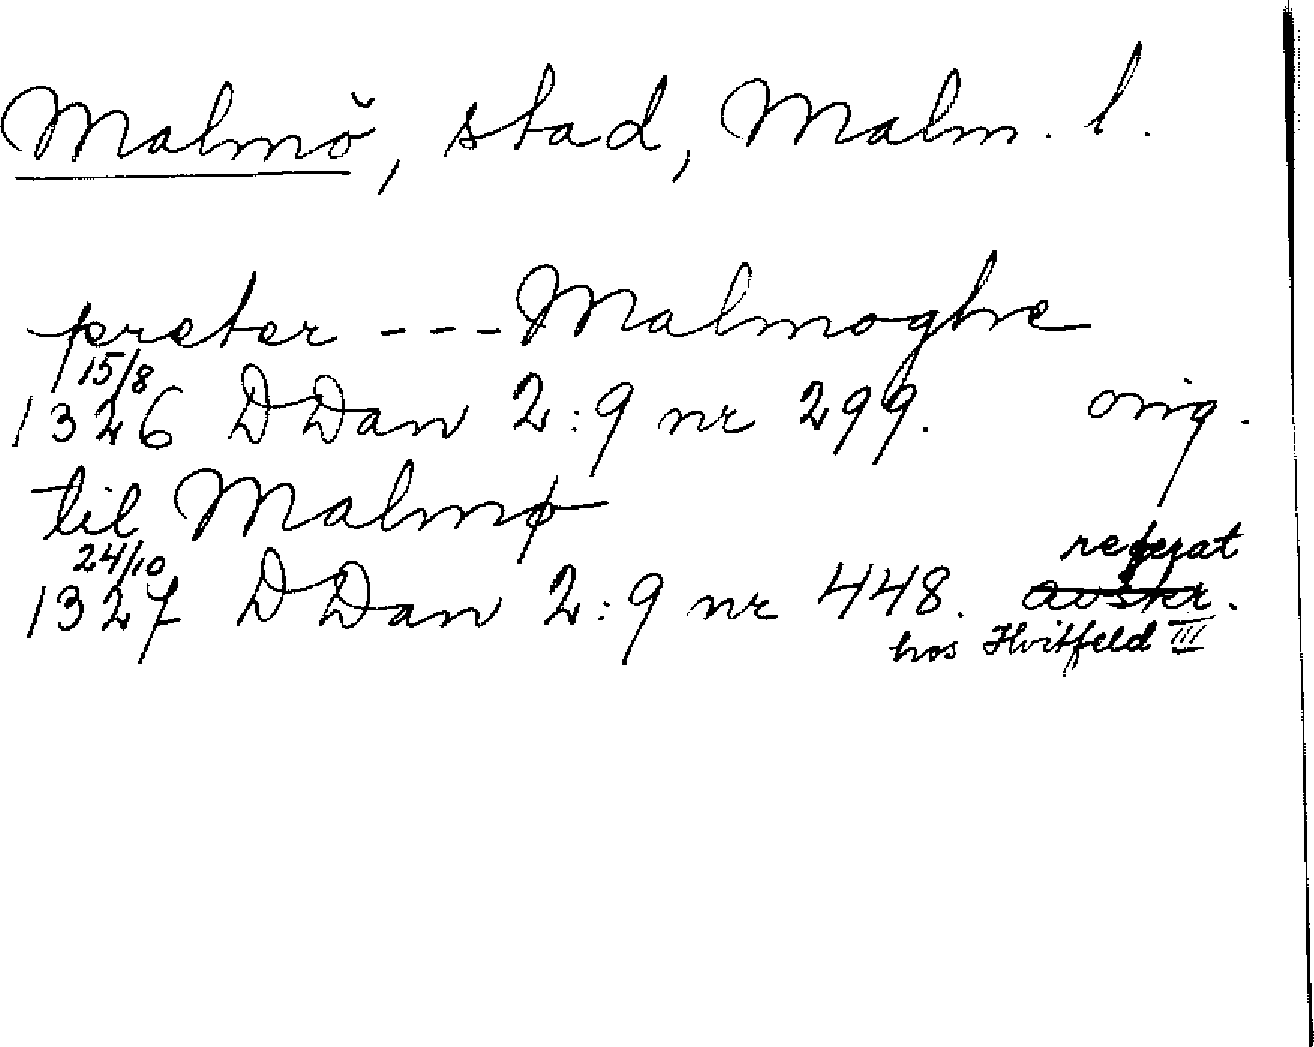 Malmö, stad, Malm. l.
preter --- Malmoghe
15/8
1326 DDan 2:9 nr 299. orig.
til Malmø
24/10 referat
1327 DDan 2:9 nr 448. avskr.
hos Hvitfeld III